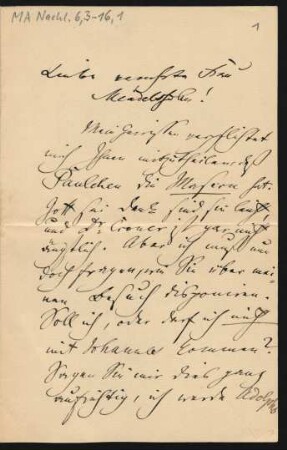 MA Nachl. 6,3-16,1
1
Liebe verehrte Frau
Mendelssohn!
Mein Gewissen verpflichtet
mich Ihnen mitzutheilen daß
Paulchen die Masern hat.
Gott sei Dank sind sie leicht
und Dr. gar nicht
ängstlich. Aber ich muß nun
doch fragen, wie Sie über mei-
nen Besuch disponieren.
Soll ich, oder darf ich nicht
mit Johannes kommen?
Sagen Sie mir dies ganz
aufrichtig, ich werde